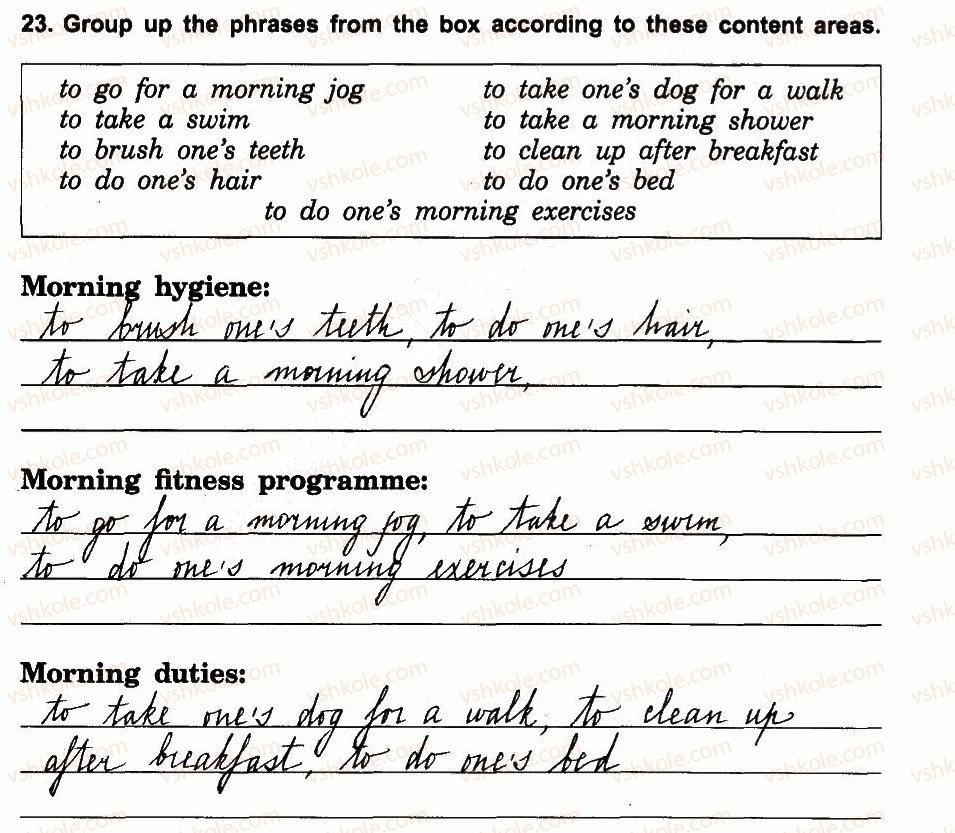 23. Group up the phrases from the box according to these content areas.
to go for a morning jog
to take a swim
to brush one's teeth
to do one's hair
to take one's dog for a walk
to take a morning shower
to clean up after breakfast
to do one's bed
to do one's morning exercises
Morning hygiene:
to brush one's teeth, to do one's hair,
to take a morning shower,
Morning fitness programme:
to go for a morning jog, to take a swim,
to do one's morning exercises
Morning duties:
to take one's dog for a walk, to clean up
after breakfast, to do one's bed
vshkole.com